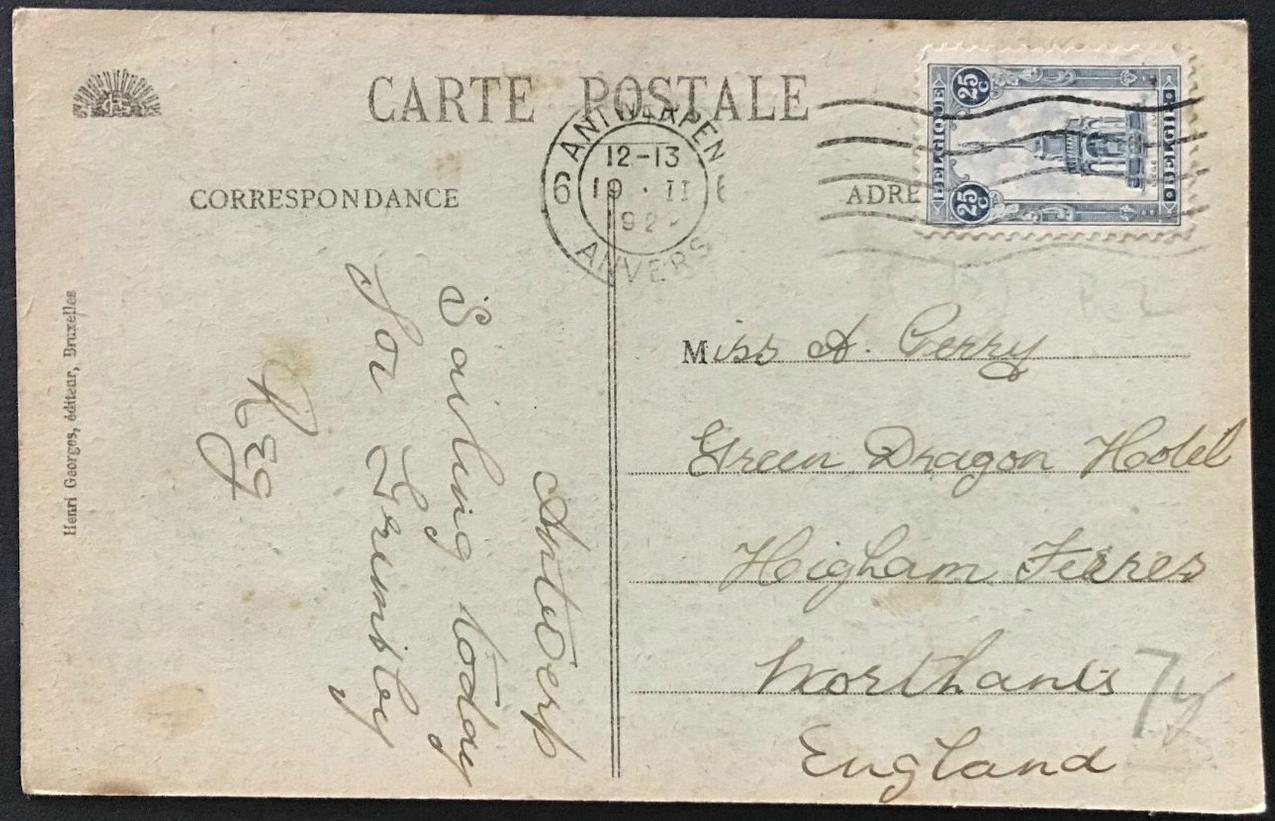 CARTE POSTALE
CORRESPONDANCE
ADRE
25c
25c
BELGIQUE
BELGIË
ANTWERPEN
12-13
6 19 · II 6
192
ANVERS
Henri Georges, éditeur, Bruxelles
Antwerp
Sailing today
for Grimsby
Reg
Miss A. Perry
Green Dragon Hotel
Higham Ferres
Northants
England